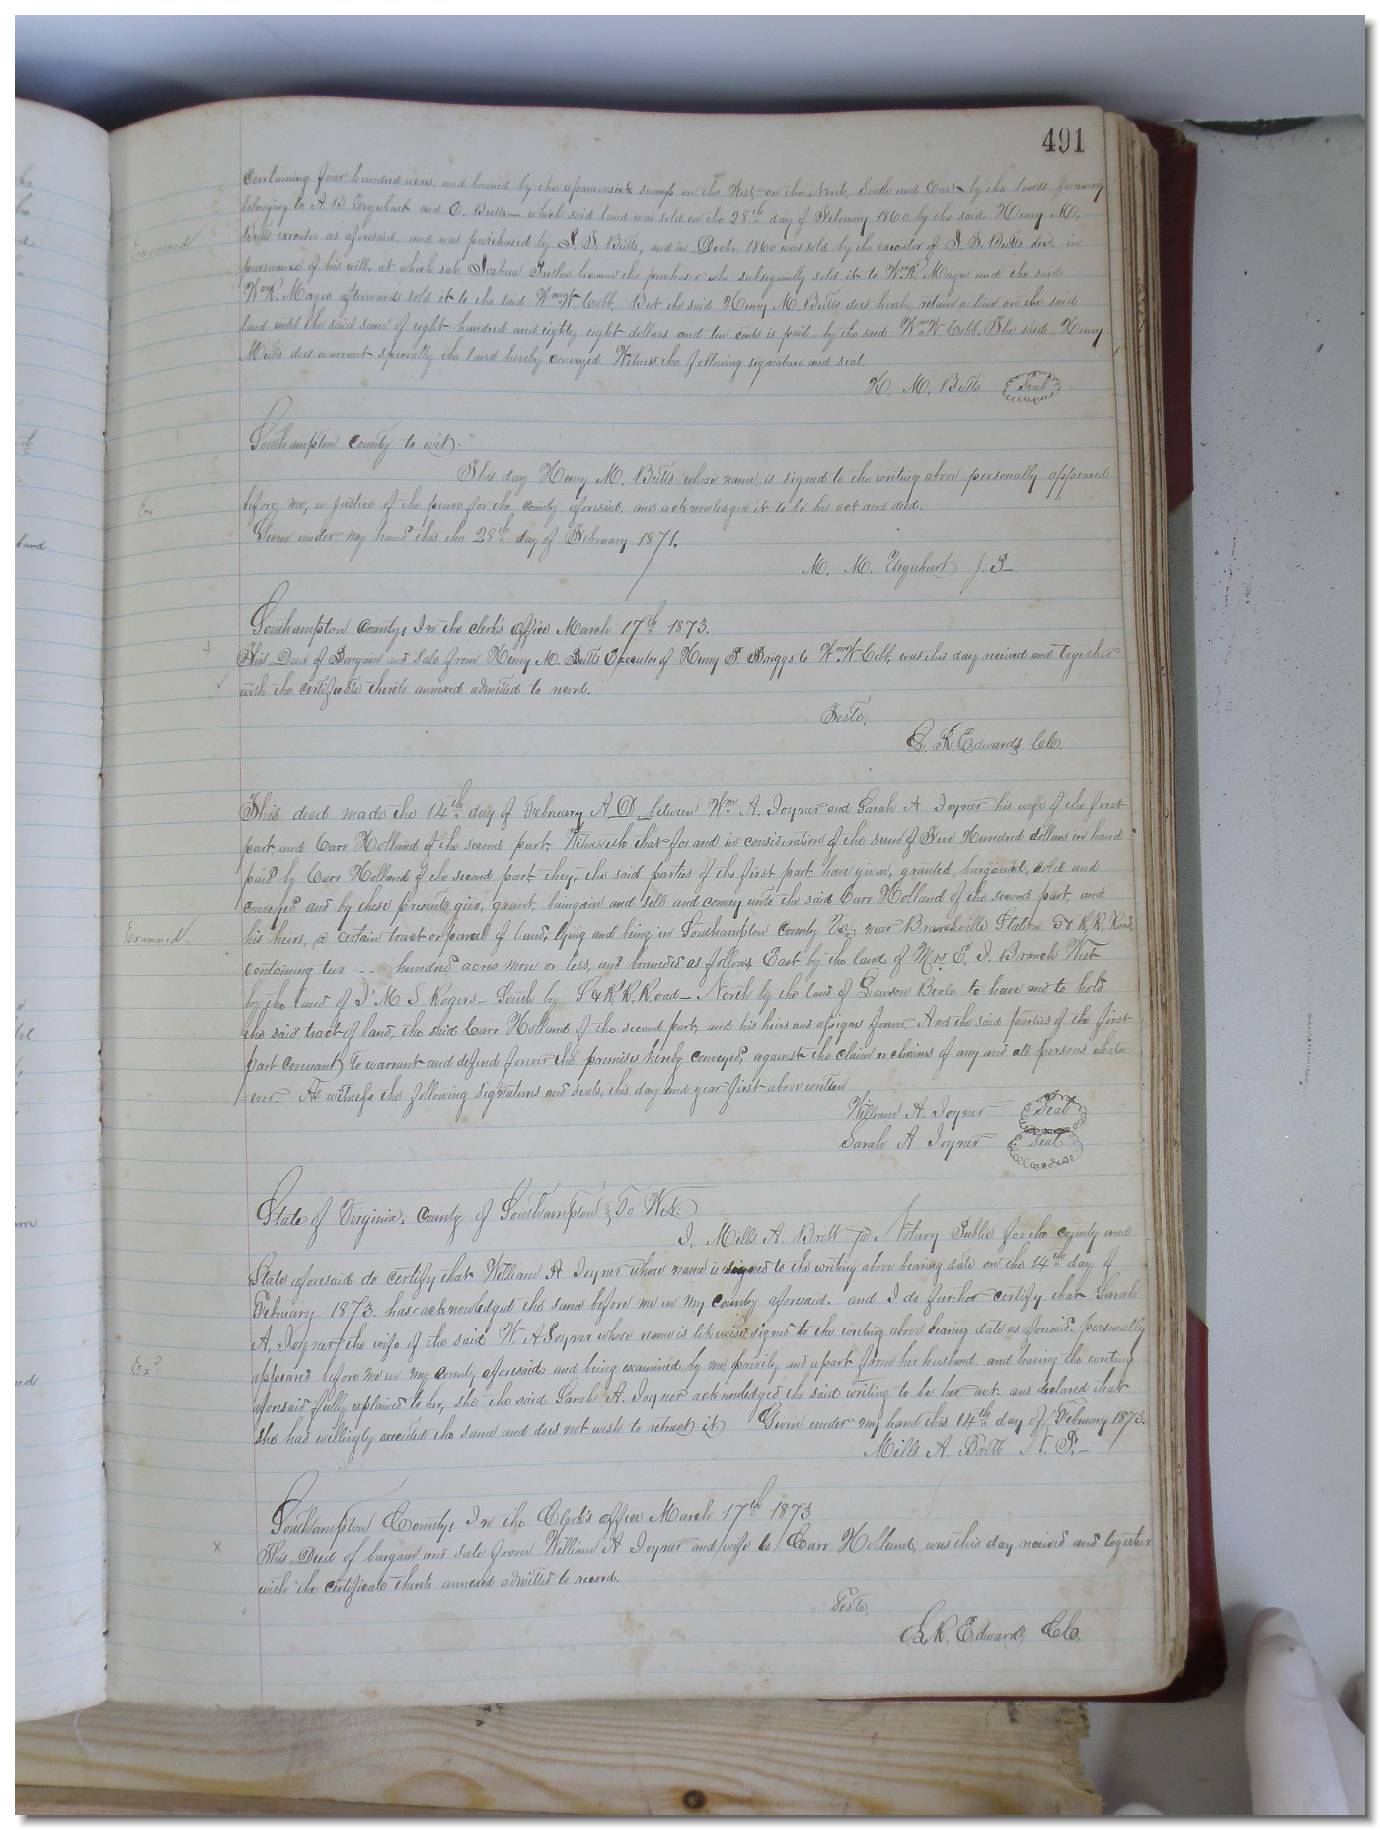 491
containing four hundred acres, and bound by the apamosink swamp on the West, on the North, South and East by the lands formerly
belonging to A B Urquhart and E. Butts which said land was sold on the 28th day of February 1860 by the said Henry M.
Examined
Butts executor as aforesaid, and was purchased by J. J. Butts, and in Decbr 1860 was sold by the executor of J. J. Butts decd in
pursuance of his will, at which sale Joshua became the purchaser who subsequently sold it to Wm K. Magee and the said
Wm K. Magee afterward sold it to the said Wm W. Cobb, But the said Henry M. Butts does hereby retain a lien on the said
land until the said sum of eight hundred and eighty eight dollars and ten cents is paid by the said Wm W Cobb. The said Henry
M Butts does warrant specially the land hereby conveyed. Witness the following signature and seal.
H. M. Butts Seal
Southampton County to wit:
This day Henry M. Butts whose name is signed to the writing above personally appeared
Ex
before me, a justice of the peace for the county aforesaid, and acknowledged it to be his act and deed.
Given under my hand this the 28th day of February 1871.
M. M. Urquhart J. P
Southampton County, In the clerk's office March 17th 1873.
This Deed of Bargain and Sale from Henry M. Butts Executor of Henry P. Briggs to Wm W. Cobb, was this day received and together
with the certificate thereto annexed admitted to record.
Teste,
L. R. Edwards Clk.
This deed made the 14th day of February A D between Wm A. Joyner and Sarah A Joyner his wife of the first
part, and Carr Holland of the second part. Witnesseth that for and in consideration of the sum of Five Hundred dollars in hand
paid by Carr Holland of the second part, they, the said parties of the first part have given, granted, bargained, sold and
conveyed and by these presents give, grant, baingain and sell and convey unto the said Carr Holland of the second part, and
Examined
his heirs, a certain tract or parcel of land, lying and being in Southampton County Va, near Branchville Station S & R, R. Road,
containing two -- hundred acres more or less, and bounded as follows East by the land of Mrs E. J. Branch West
by the land of J M S Rogers - South by S & R R. Road - North by the land of Lawson Beale to have and to hold
the said tract of land, the said Carr Holland of the second part, and his heirs and assigns forever, And the said parties of the first
part covenant to warrant and defend forever the premises hereby conveyed, against the claim or claims of any and all persons whatso
ever. As witness the following signatures and seals, this day and year first above written
William A. Joyner Seal
Sarah A Joyner Seal
State of Virginia, County of Southampton, To Wit:
I, Mills A. Britt a Notary Public for the county and
State aforesaid do certify that William A Joyner whose name is signed to the writing above bearing date on the 14th day of
February 1873. has acknowledged the same before me in my county aforesaid. and I do further certify that Sarah
A. Joyner the wife of the said W. A Joyner whose name is likewise signed to the writing above bearing date as aforesaid. personally
Exd
appeared before me in my county aforesaid and being examined by me privily and apart from her husband. and having the writing
aforesaid fully explained to her, she the said Sarah A. Joyner acknowledged the said writing to be her act. and declared that
she had willingly executed the same and does not wish to retract it. Given under my hand this 14th day of February 1873.
Mills A. Britt N. P.
Southampton County, In the Clerk's office March 17th 1873
x
This Deed of bargain and sale from William A Joyner and wife to Carr Holland, was this day received and together
with the certificate thereto annexed admitted to record.
Teste,
L. R. Edwards, Clk.